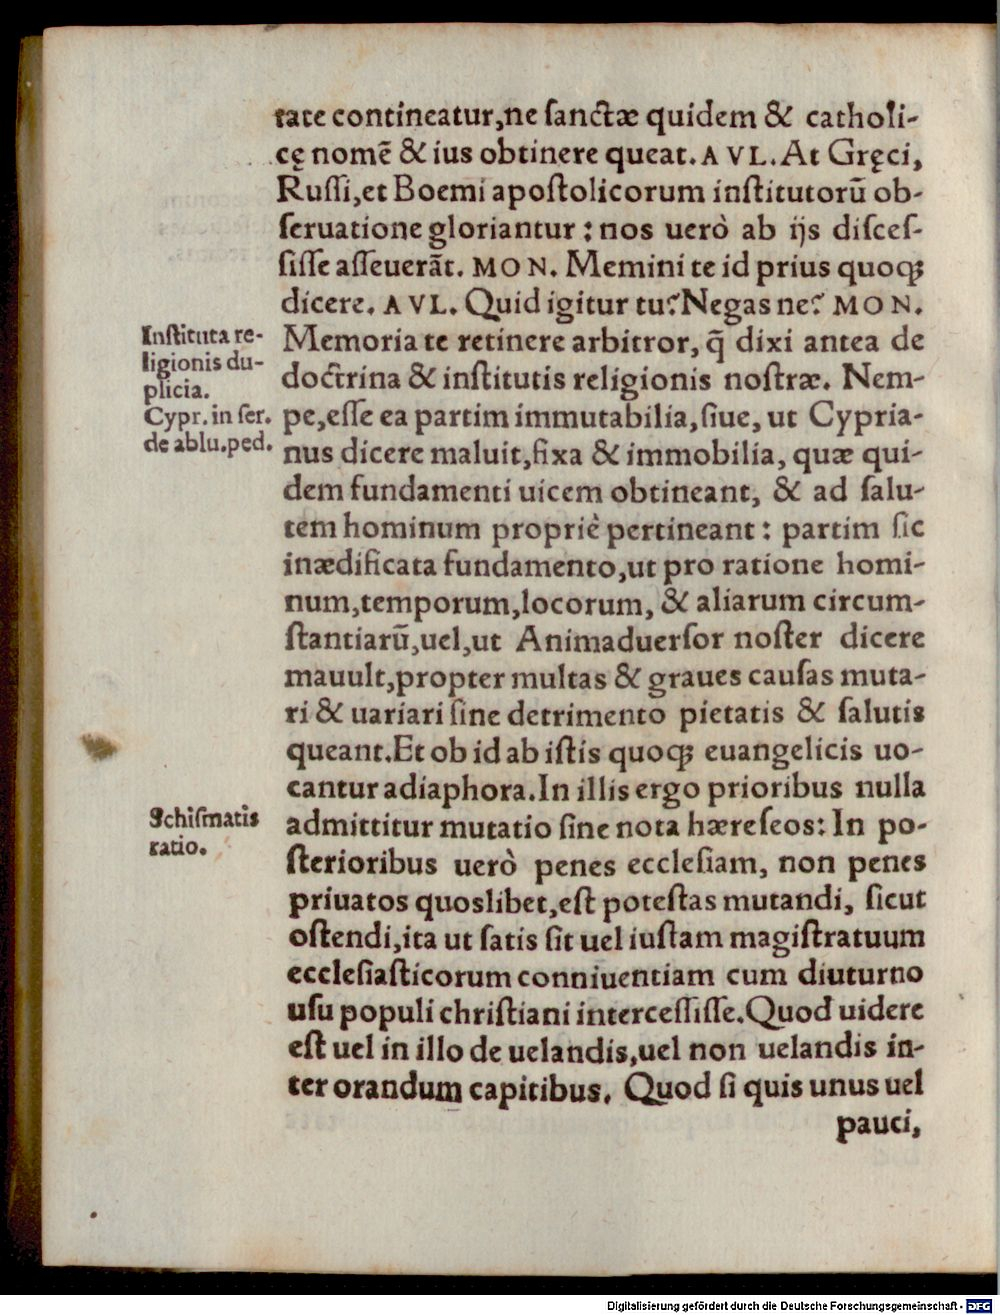 tate contineatur,ne ſanctæ quidem & catholi-
cę nomẽ & ius obtinere queat. AVL. At Gręci,
Ruſſi,et Boemi apoſtolicorum inſtitutorũ ob-
ſeruatione gloriantur: nos uerò ab ijs diſceſ-
ſiſſe aſſeuerãt. MON. Memini te id prius quoq;
dicere. AVL. Quid igitur tu? Negas ne? MON.
Memoria te retinere arbitror, q̃ dixi antea de
doctrina & inſtitutis religionis noſtræ. Nem-
pe,eſſe ea partim immutabilia,ſiue, ut Cypria-
nus dicere maluit,fixa & immobilia, quæ qui-
dem fundamenti uicem obtineant, & ad ſalu-
tem hominum propriè pertineant: partim ſic
inædificata fundamento,ut pro ratione homi-
num,temporum,locorum, & aliarum circum-
ſtantiarũ,uel,ut Animaduerſor noſter dicere
mauult,propter multas & graues cauſas muta-
ri & uariari ſine detrimento pietatis & ſalutis
queant.Et ob id ab iſtis quoq; euangelicis uo-
cantur adiaphora.In illis ergo prioribus nulla
admittitur mutatio ſine nota hæreſeos: In po-
ſterioribus uerò penes eccleſiam, non penes
priuatos quoslibet,eſt poteſtas mutandi, ſicut
oſtendi,ita ut ſatis ſit uel iuſtam magiſtratuum
eccleſiaſticorum conniuentiam cum diuturno
uſu populi chriſtiani interceſſiſſe.Quod uidere
eſt uel in illo de uelandis,uel non uelandis in-
ter orandum capitibus. Quod ſi quis unus uel
pauci,
Inſtituta re-
ligionis du-
plicia.
Cypr. in ſer.
de ablu.ped.
Schiſmatis
ratio.
Digitalisierung gefördert durch die Deutsche Forschungsgemeinschaft - DFG